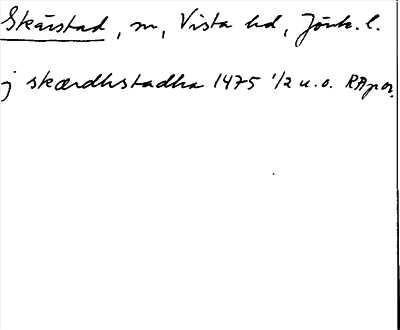 Skärstad, sn, Vista hd, Jönk. l.
j skærdhstadha 1475 1/2 u.o. RAp or.